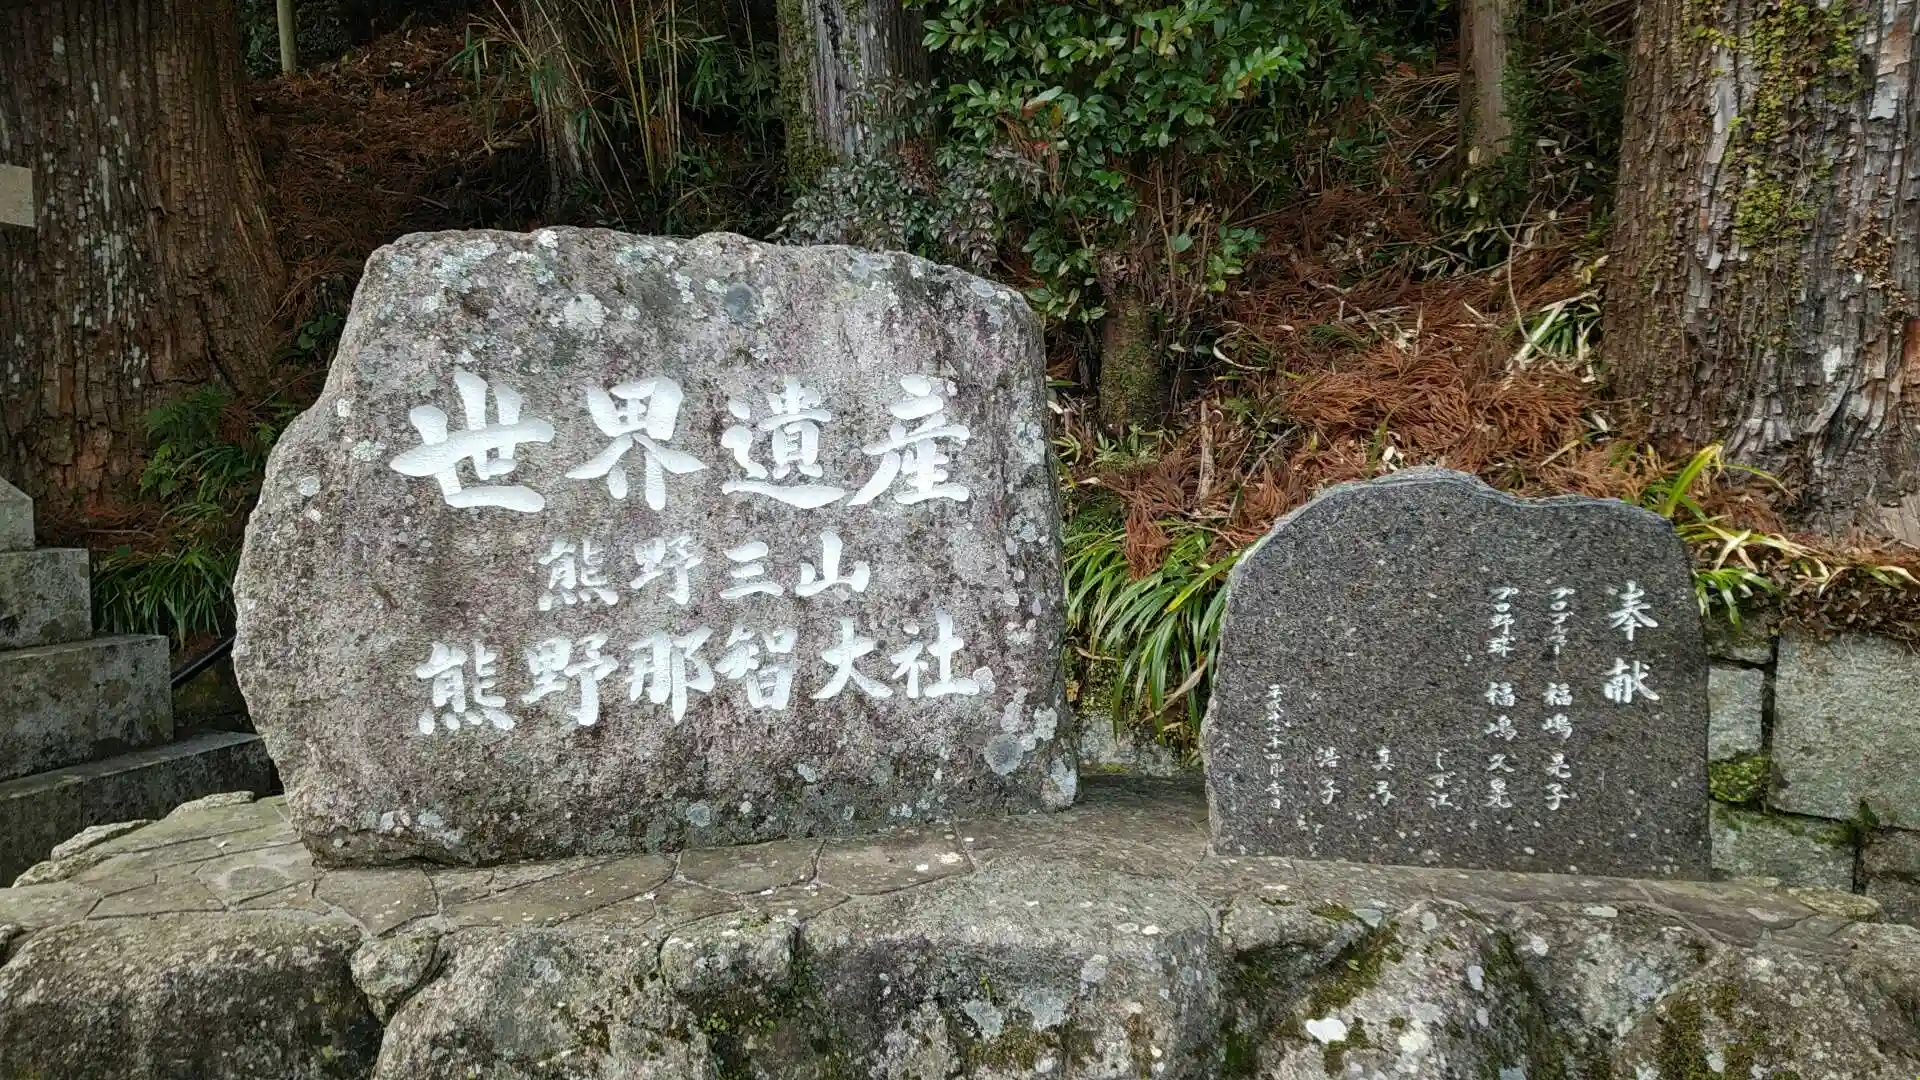 世界遺産
熊野三山
熊野那智大社
奉献
プロゴルファー 福嶋晃子
プロ野球 福嶋久晃
しず江
真弓
浩子